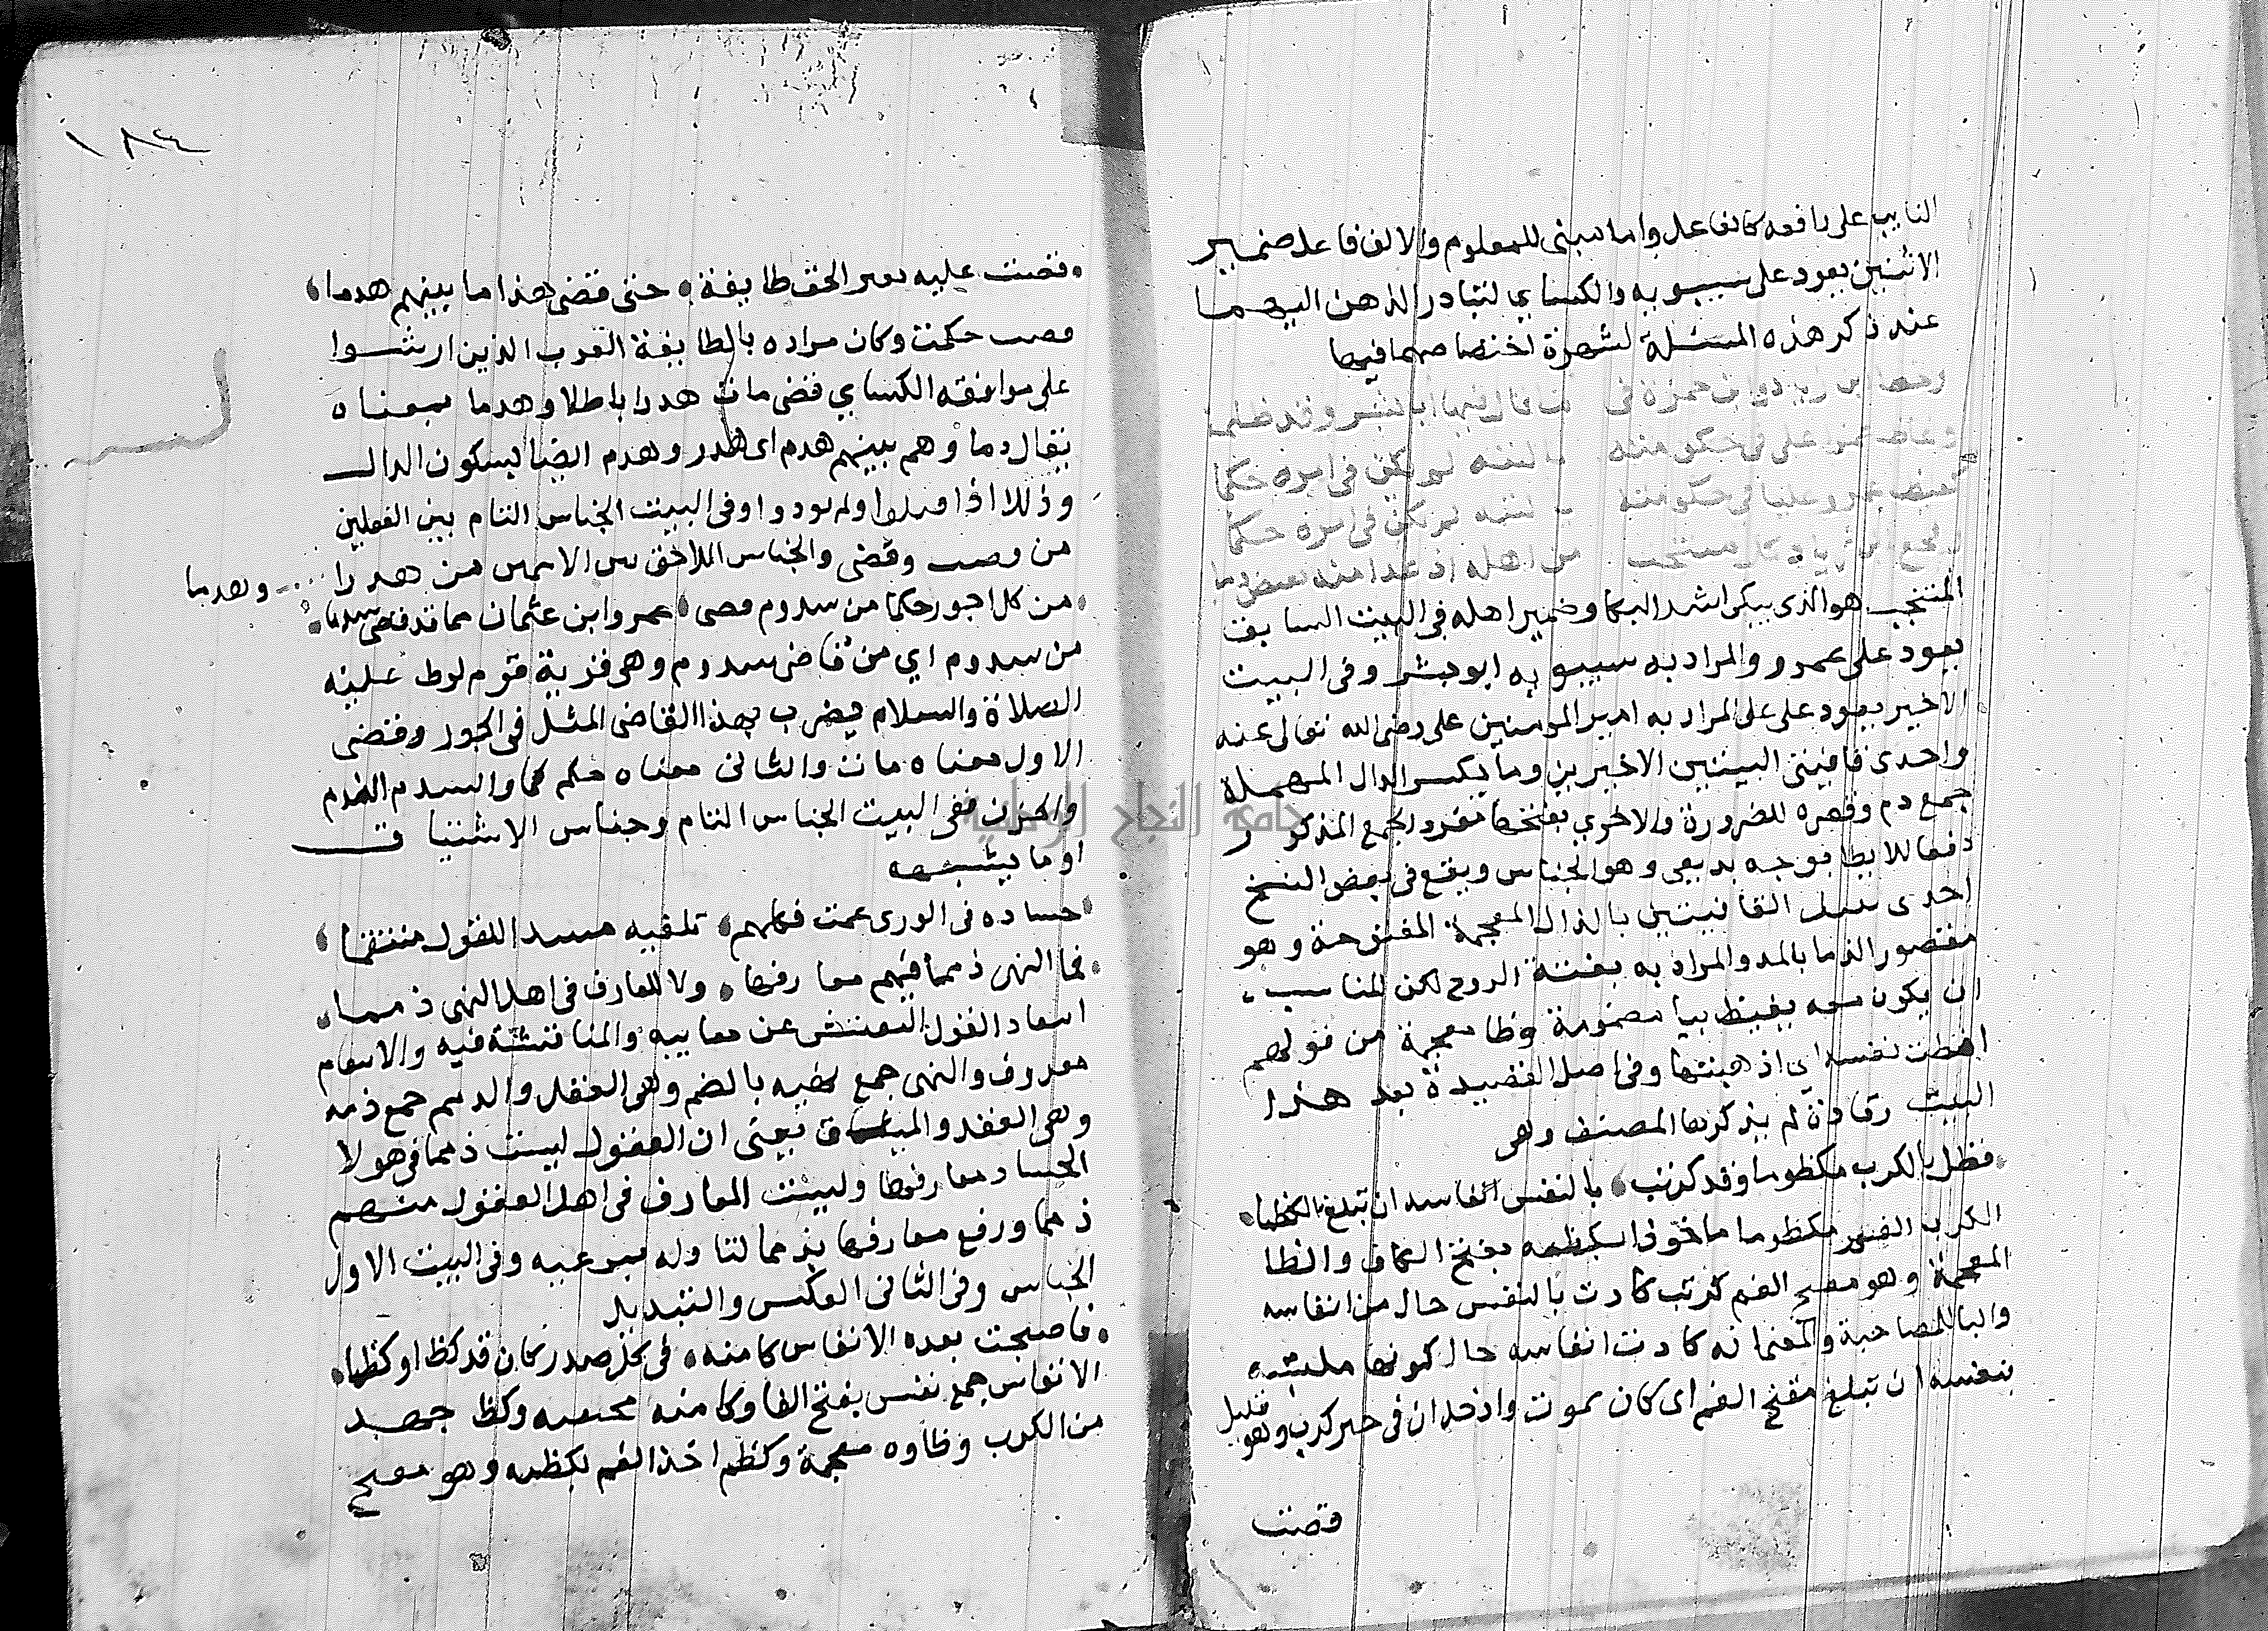 النايب على رافعه كالفاعل واما مبنى للمعلوم والالف فاعل ضمير
الاثنين يعود على سيبويه والكساي لتبادر الذهن اليهما
عند ذكر هذه المسئلة لشهرة اختصاصهما فيها
وغاظ عمرا على فى حكومته يا ليته لم يكن فى امره حكما
كغيظ عمرو عليا فى حكومته يا ليته لم يكن فى امره حكما
من اهله اذ غدا منه يفيض دما
المنتحب هو الذى يبكى اشد البكا وضمير اهله فى البيت السابق
يعود على عمرو والمراد به سيبويه ابو بشر وفى البيت
الاخير يعود على على المراد به امير المومنين على رضى الله تعالى عنه
واحدى قافيتى البيتين الاخيرين وما بكسر الدال المهملة
جمع دم وقصره للضرورة والاخرى بفتحها مفرد الجمع المذكور
دفعا للايطا بوجه بديعى وهو الجناس ويقع فى بعض النسخ
احدى القافيتين بالذال المعجمة المفتوحة وهو
مقصور الذما بالمد والمراد به بقية الروح لكن المناسب
ان يكون معه يفيظ بيا مضمومة وظا معجمة من قولهم
افظت نفسه اى اذهبتها وفى اصل القصيدة بعد هذا
البيت لم يذكرها المصنف وهى
فظل بالكرب مكظوما وقد كربت بالنفس انفاسه ان تبلغ الكظما
الكرب الغم مكظوما ماخوذا بكظمه بفتح الكاف والظا
المعجمة وهو مفتح الفم كربت كادت بالنفس حال من انفاسه
والبا للمصاحبة والمعنا انه كادت انفاسه حال كونها ملتبسه
بنفسه ان تبلغ مفتح الفم اى كان يموت وادخل ان فى خبر كرب وهو قليل
قضت
١٨٤
قضت عليه بغير الحق طايفة حتى قضى هذا ما بينهم هدما
قضت حكمت وكان مراده بالطايفة العرب الذين ارشوا
على موافقه الكساي قضى مات هدرا باطلا وهدما بمعناه
يقال دماوهم بينهم هدم اى هدر وهدم ايضا بسكون الدال
وذلك اذا قتلوا ولم يودوا وفى البيت الجناس التام بين الفعلين
من قضت وقضى والجناس اللاحق بين الاسمين من هدرا وهدما
من كل اجور حكما من سدوم قضى عمرو ابن عثمان مما قد قضى سدما
من سدوم اي من قاضى سدوم وهى قرية قوم لوط عليه
الصلاة والسلام يضرب بهذا القاضى المثل فى الجور وقضى
الاول معناه مات والثانى معناه حكم كما والسدم الندم
والحزن ففى البيت الجناس التام وجناس الاشتياق
او ما يشبهه
حساده فى الورى عمت فكلهم تلفيه منتقدا للقول منتقما
فما النهى ذمما فيهم معارفها ولا المعارف فى اهل النهى ذمما
انتقاد القول التفتيش عن معايبه والمناقشة فيه والانتقام
معروف والنهى جمع نهيه بالضم وهى العقل والذمم جمع ذمه
وهى العقد والميثاق يعنى ان العقول ليست ذمما فى هولا
الحساد معارفها وليست المعارف فى اهل العقول منهم
ذمما ورفع معارفها بذمما وفى البيت الاول
الجناس وفى الثانى العكس والتبديل
فاصبحت بعده الانفاس كامنه فى كل صدر كان قد كظ او كظما
الانفاس جمع نفس بفتح الفا وكامنه مختفيه وكظ جهد
من الكرب وظاوه معجمة وكظم اخذ الغم بكظمه وهو مفتح